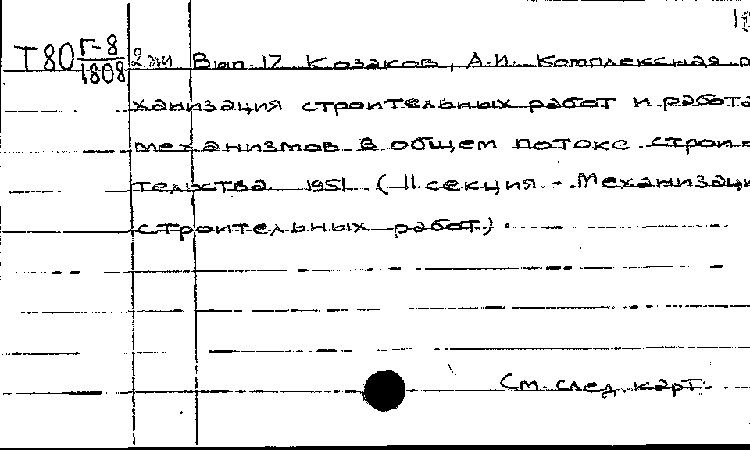 Т80 Г-8/1808 2 жи Вып. 17. Козаков, А.И. Комплексная
ханизация строительных работ и работа
механизмов в общем потоке строи-
тельства. 1951. (II секция - Механизаци
строительных работ).
См. след. карт.